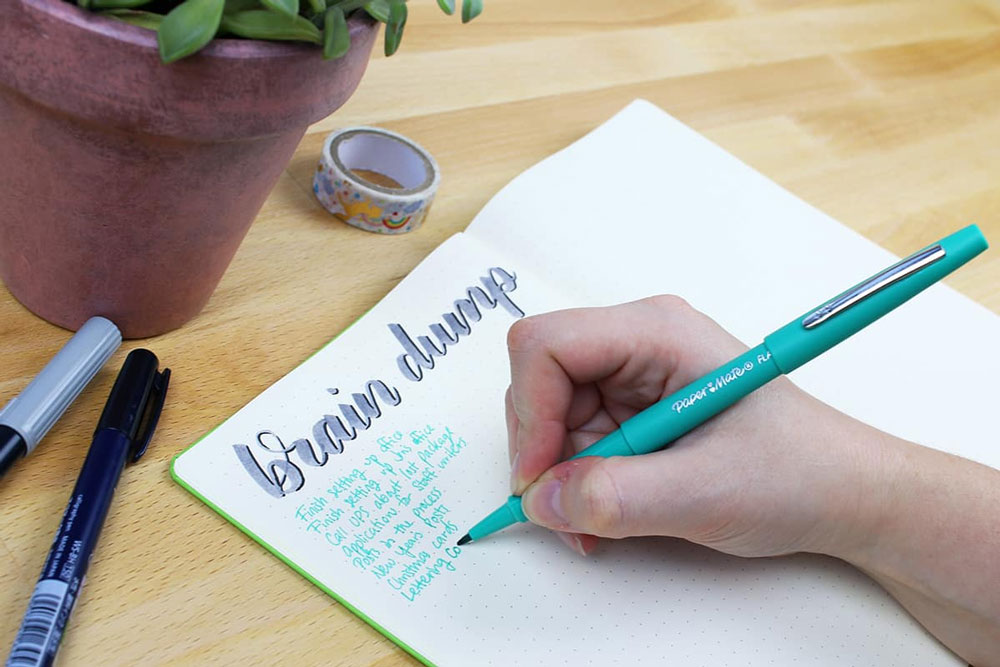 brain dump
Finish setting up office
Finish setting up Jon's office
Call UPS about lost package
applications for staff writers
Posts in the process
New Years Post
Christmas cards
Lettering Co
Paper Mate® FLA
MADE IN JAPAN